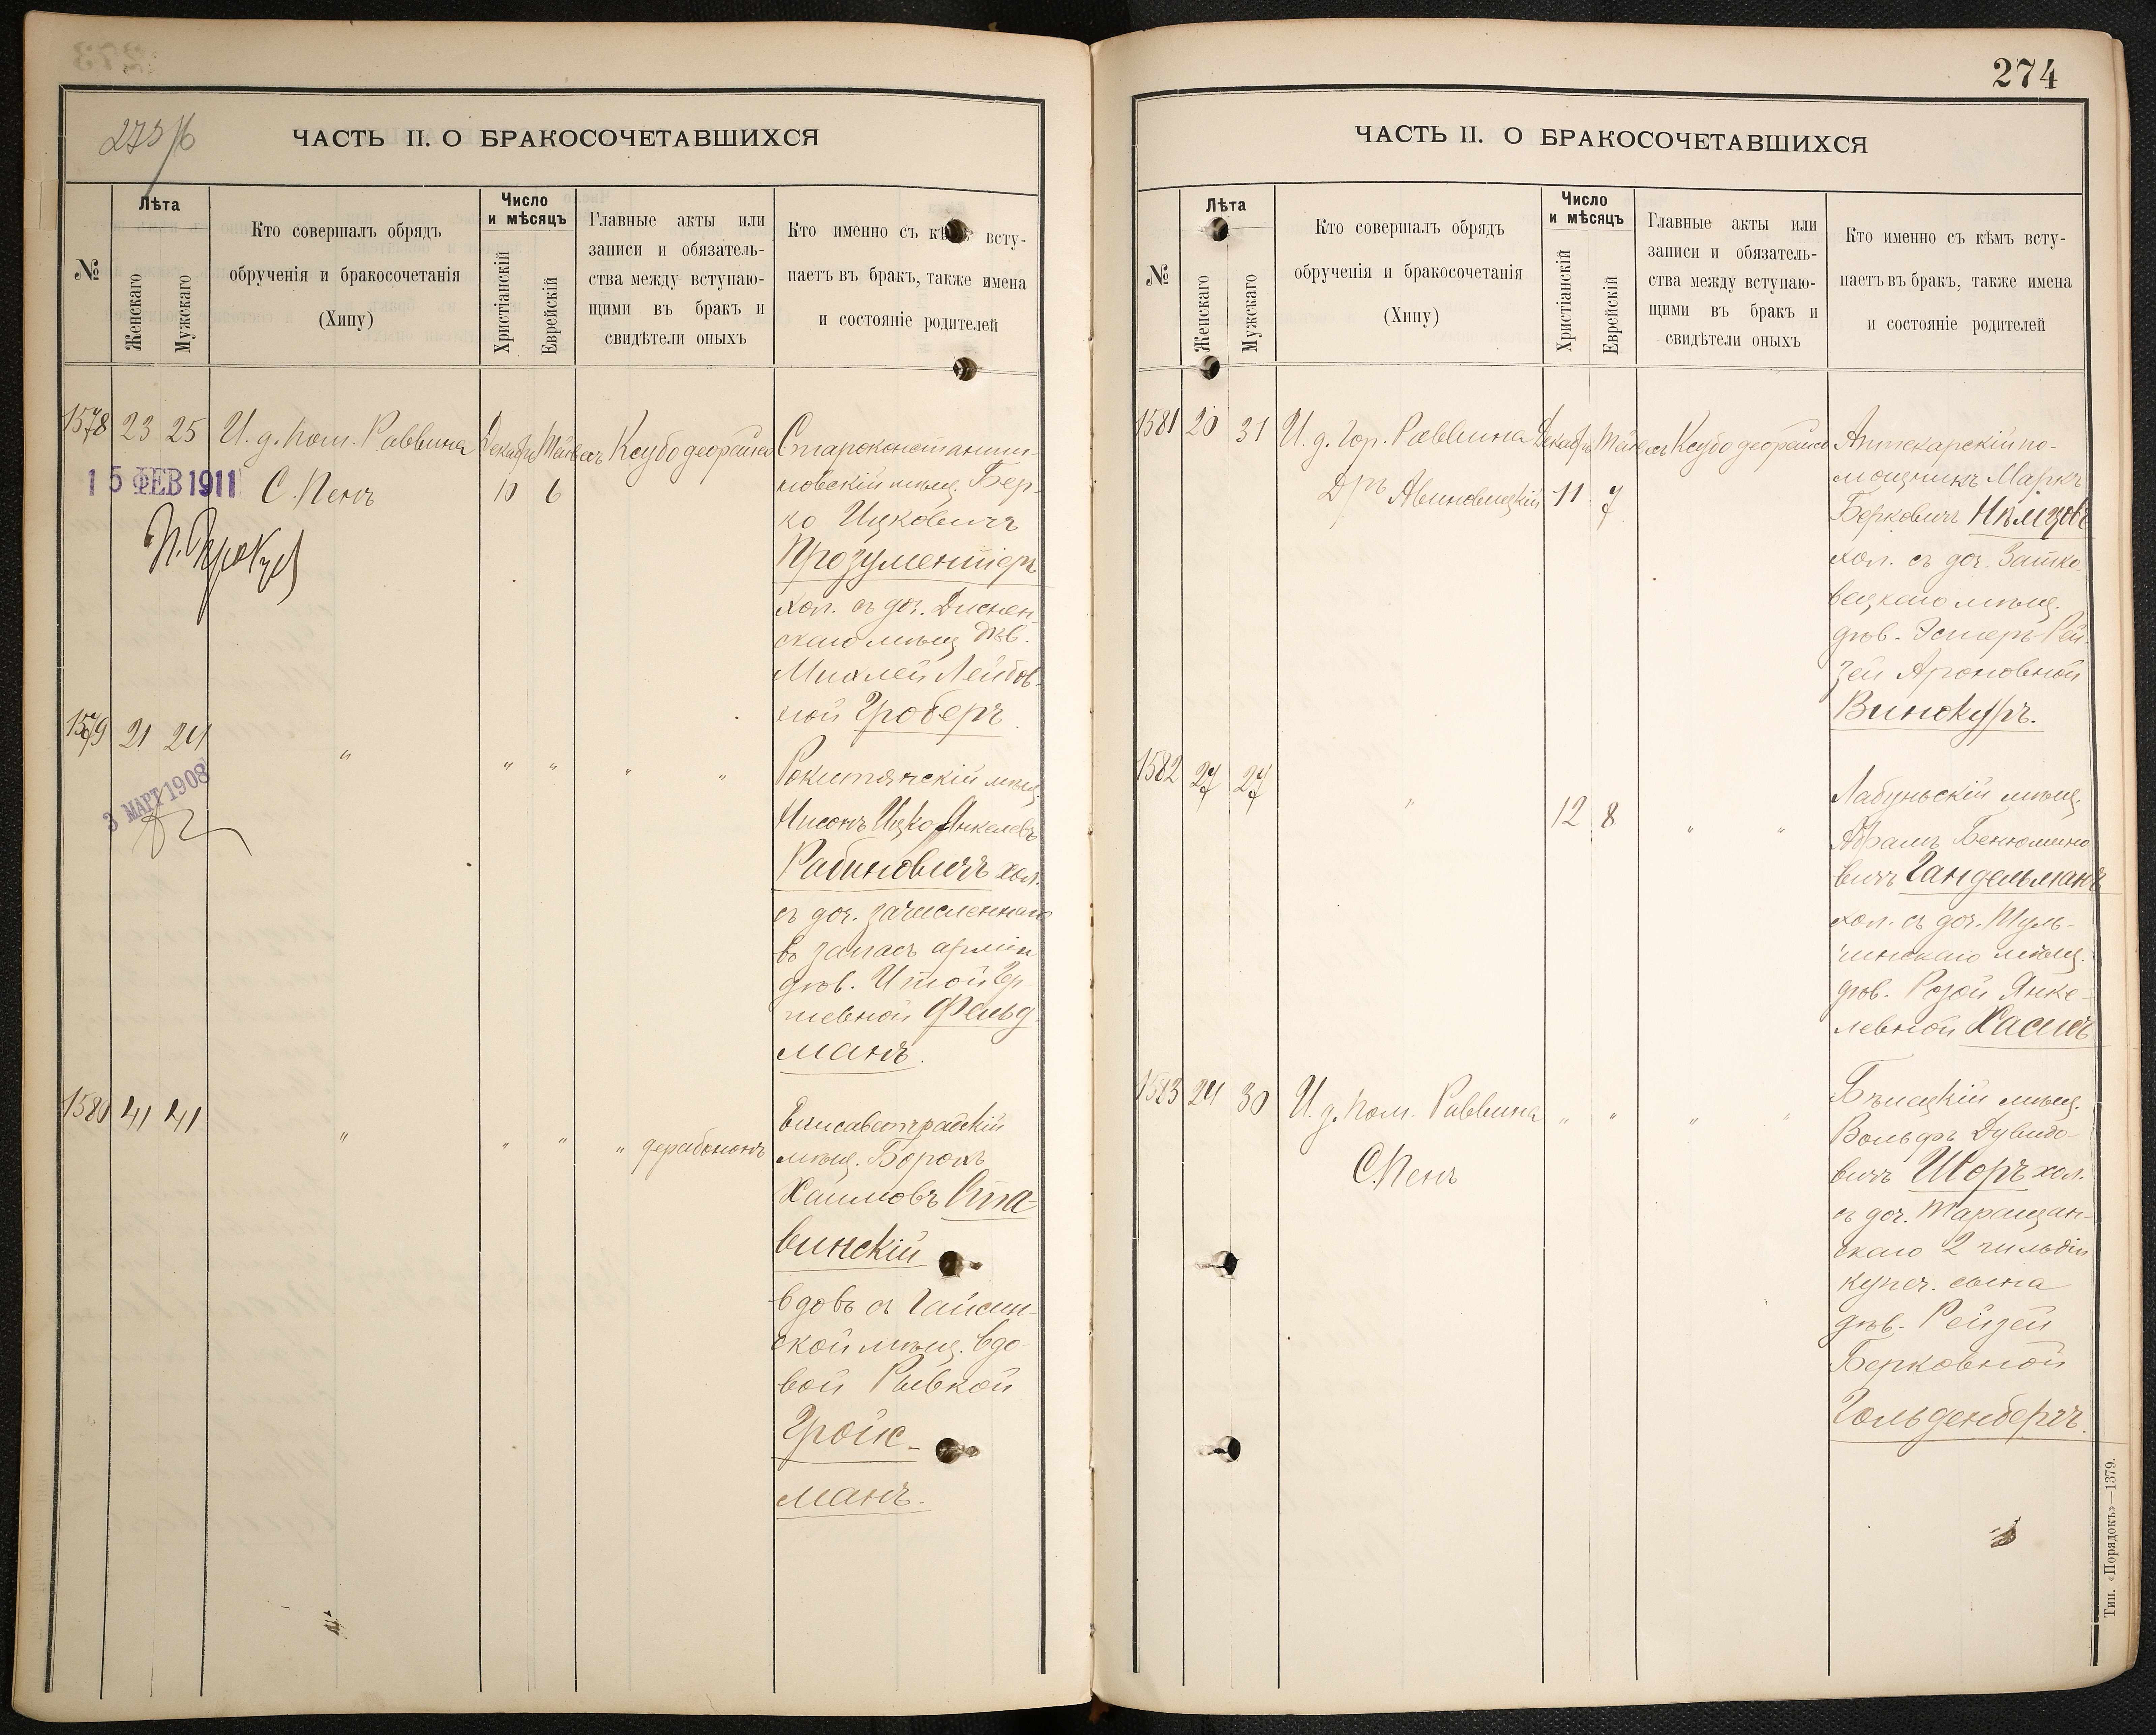 275/6
ЧАСТЬ II. О БРАКОСОЧЕТАВШИХСЯ
№
Лѣта
Женскаго
Мужскаго
Кто совершалъ обрядъ
обрученія и бракосочетанія
(Хипу)
Число
и мѣсяцъ
Христіанскій
Еврейскій
Главные акты или
записи и обязатель-
ства между вступаю-
щими въ бракъ и
свидѣтели оныхъ
Кто именно съ кѣмъ всту-
паетъ въ бракъ, также имена
и состояніе родителей
1578 23 25 И. д. пом. Раввина
С. Пенъ
Декабрь
10 6
Ксубо деорайса
15 ФЕВ 1911
Староконстанти-
новскій мѣщ. Бер-
ко Ицковичъ
Прозументіеръ
хол. съ доч. Диснен-
скаго мѣщ. дѣв.
Михлей Лейбов-
ной Гроберъ.
1579 21 24 " " " " "
3 МАРТ 1908
Рокитянскій мѣщ.
Нисонъ Ицко Янкелевъ
Рабиновичъ хол.
съ доч. зачисленнаго
въ запасъ арміи
дѣв. Итой Гер-
шевной Фельд-
манъ.
1580 41 41 " " " " дерабононъ
Елисаветградскій
мѣщ. Борохъ
Хаимовъ Ста-
винскій
вдовъ съ Гайсин-
ской мѣщ. вдо-
вой Рывкой
Гройс-
манъ.
274
ЧАСТЬ II. О БРАКОСОЧЕТАВШИХСЯ
№
Лѣта
Женскаго
Мужскаго
Кто совершалъ обрядъ
обрученія и бракосочетанія
(Хипу)
Число
и мѣсяцъ
Христіанскій
Еврейскій
Главные акты или
записи и обязатель-
ства между вступаю-
щими въ бракъ и
свидѣтели оныхъ
Кто именно съ кѣмъ всту-
паетъ въ бракъ, также имена
и состояніе родителей
1581 20 31 И. д. Гор. Раввина
Д/ръ Авиновицкій
Декабрь
11 7
Ксубо деорайса
Аптекарскій по-
мощникъ Маркъ
Берковичъ Нѣмзовъ
хол. съ доч. Затко-
вецкаго мѣщ.
дѣв. Эстеръ-Рей-
зей Ароновной
Винокуръ.
1582 27 27 " 12 8 " "
Лабуньскій мѣщ.
Абрамъ Бенюмино
вичъ Гандельманъ
хол. съ доч. Туль-
чинскаго мѣщ.
дѣв. Розой Янке-
левной Хасисъ
1583 24 30 И. д. пом. Раввина " " " "
С. Пенъ
Бѣлецкій мѣщ.
Вольфъ Дувидо-
вичъ Шоръ хол.
съ доч. Таращан-
скаго 2 гильдіи
купеч. сына
дѣв. Рейзей
Берковной
Гольденбергъ.
Тип. «Порядокъ»—1379.